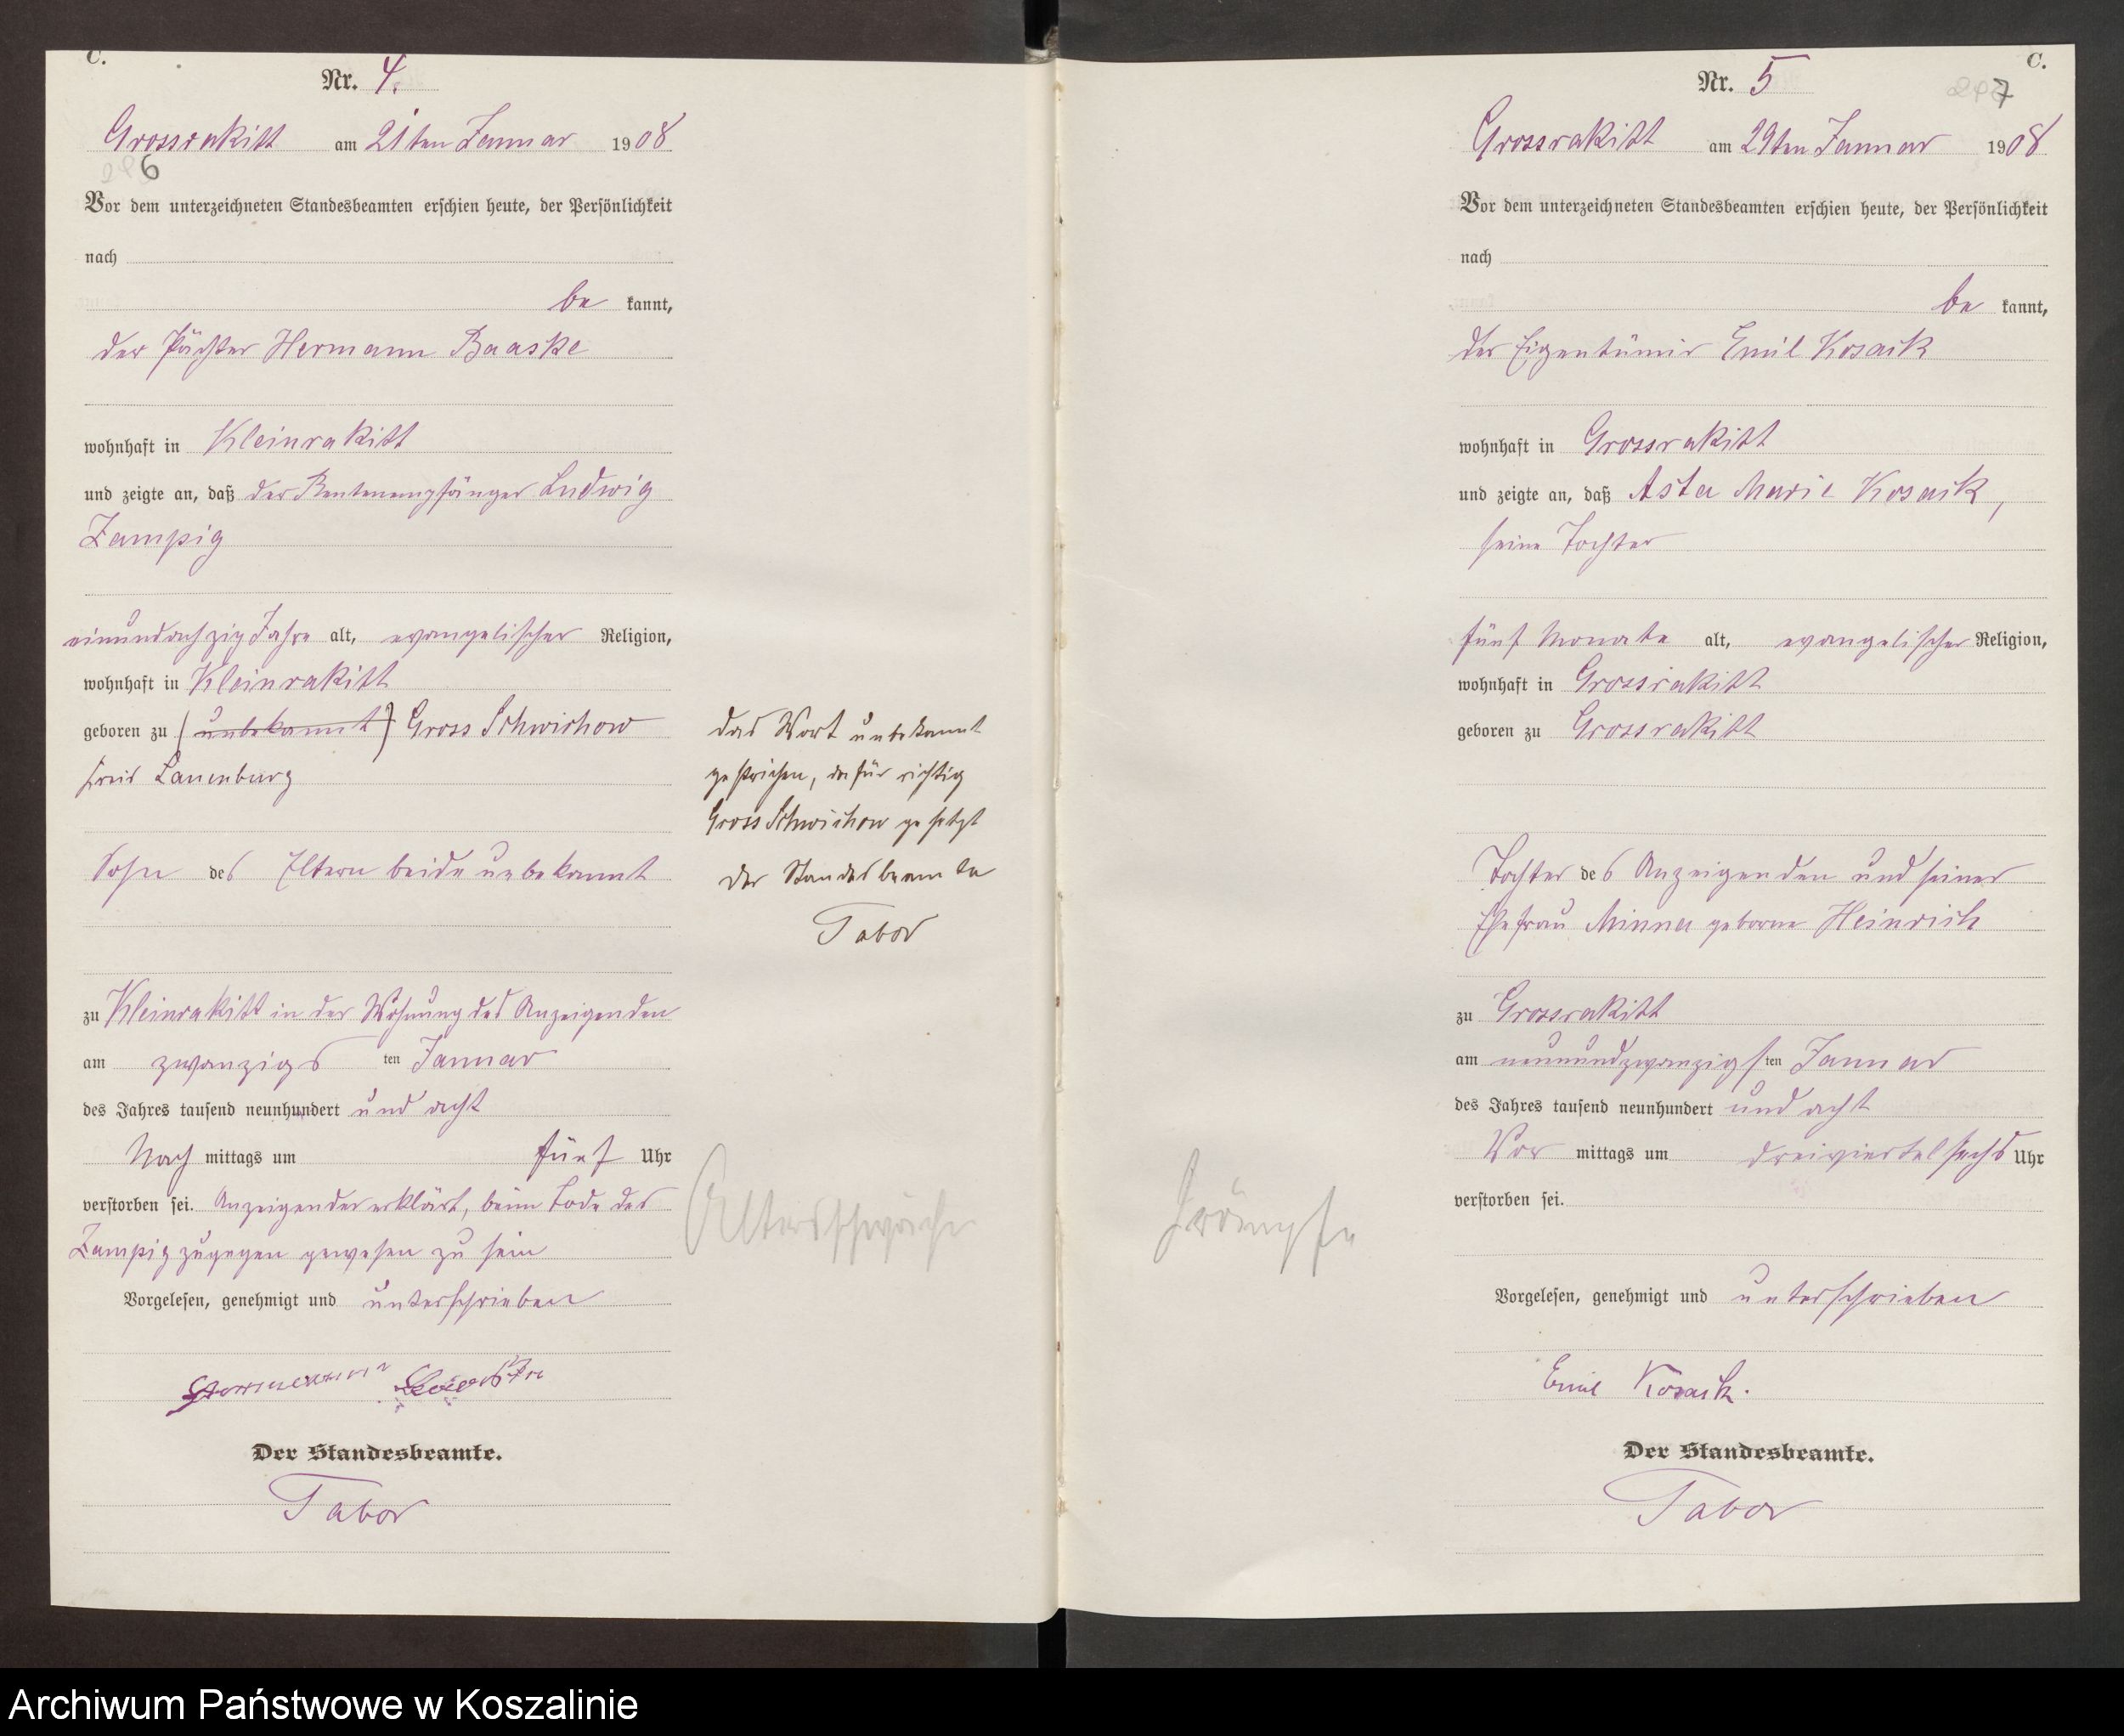 C.
Nr. 4.
Grossrakitt am 21ten Januar 1908
6
Vor dem unterzeichneten Standesbeamten erschien heute, der Persönlichkeit
nach
be kannt,
der Pächter Hermann Baaske
wohnhaft in Kleinrakitt
und zeigte an, daß der Rentenempfänger Ludwig
Zampig
einundachzig Jahre alt, evangelischer Religion,
wohnhaft in Kleinrakitt
geboren zu (unbekannt) Gross Schwichow
Kreis Lauenburg
Sohn des Eltern beide unbekannt
zu Kleinrakitt in der Wohnung des Anzeigenden
am zwanzigs ten Januar
des Jahres tausend neunhundert und acht
Nach mittags um fünf Uhr
verstorben sei. Anzeigender erklärt, beim Tode des
Zampig zugegen gewesen zu sein
Vorgelesen, genehmigt und unterschrieben
Hermann Baaske
Der Standesbeamte.
Tabor
das Wort unbekannt
gestrichen, dafür richtig
Gross Schwichow gesetzt
der Standesbeamte
Tabor
Altersschwäche
C.
Nr. 5
7
Grossrakitt am 29ten Januar 1908
Vor dem unterzeichneten Standesbeamten erschien heute, der Persönlichkeit
nach
be kannt,
der Eigentümer Emil Kosack
wohnhaft in Grossrakitt
und zeigte an, daß Asta Marie Kosack,
seine Tochter
fünf Monate alt, evangelischer Religion,
wohnhaft in Grossrakitt
geboren zu Grossrakitt
Tochter des Anzeigenden und seiner
Ehefrau Minna geborne Heinrich
zu Grossrakitt
am neunundzwanzigs ten Januar
des Jahres tausend neunhundert und acht
Vor mittags um dreiviertel sechs Uhr
verstorben sei.
Vorgelesen, genehmigt und unterschrieben
Emil Kosack.
Der Standesbeamte.
Tabor
Krämpfe
Archiwum Państwowe w Koszalinie